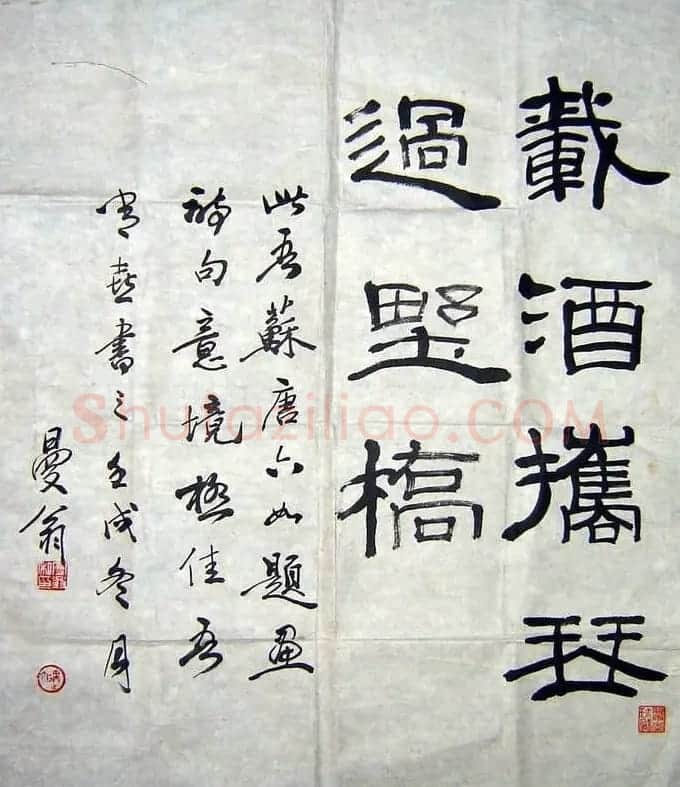 載酒攜琴
過野橋
此吾蘇唐六如題畫
詩句意境極佳吾
常喜書之壬戌冬月
曼翁
Shufaziliao.COM